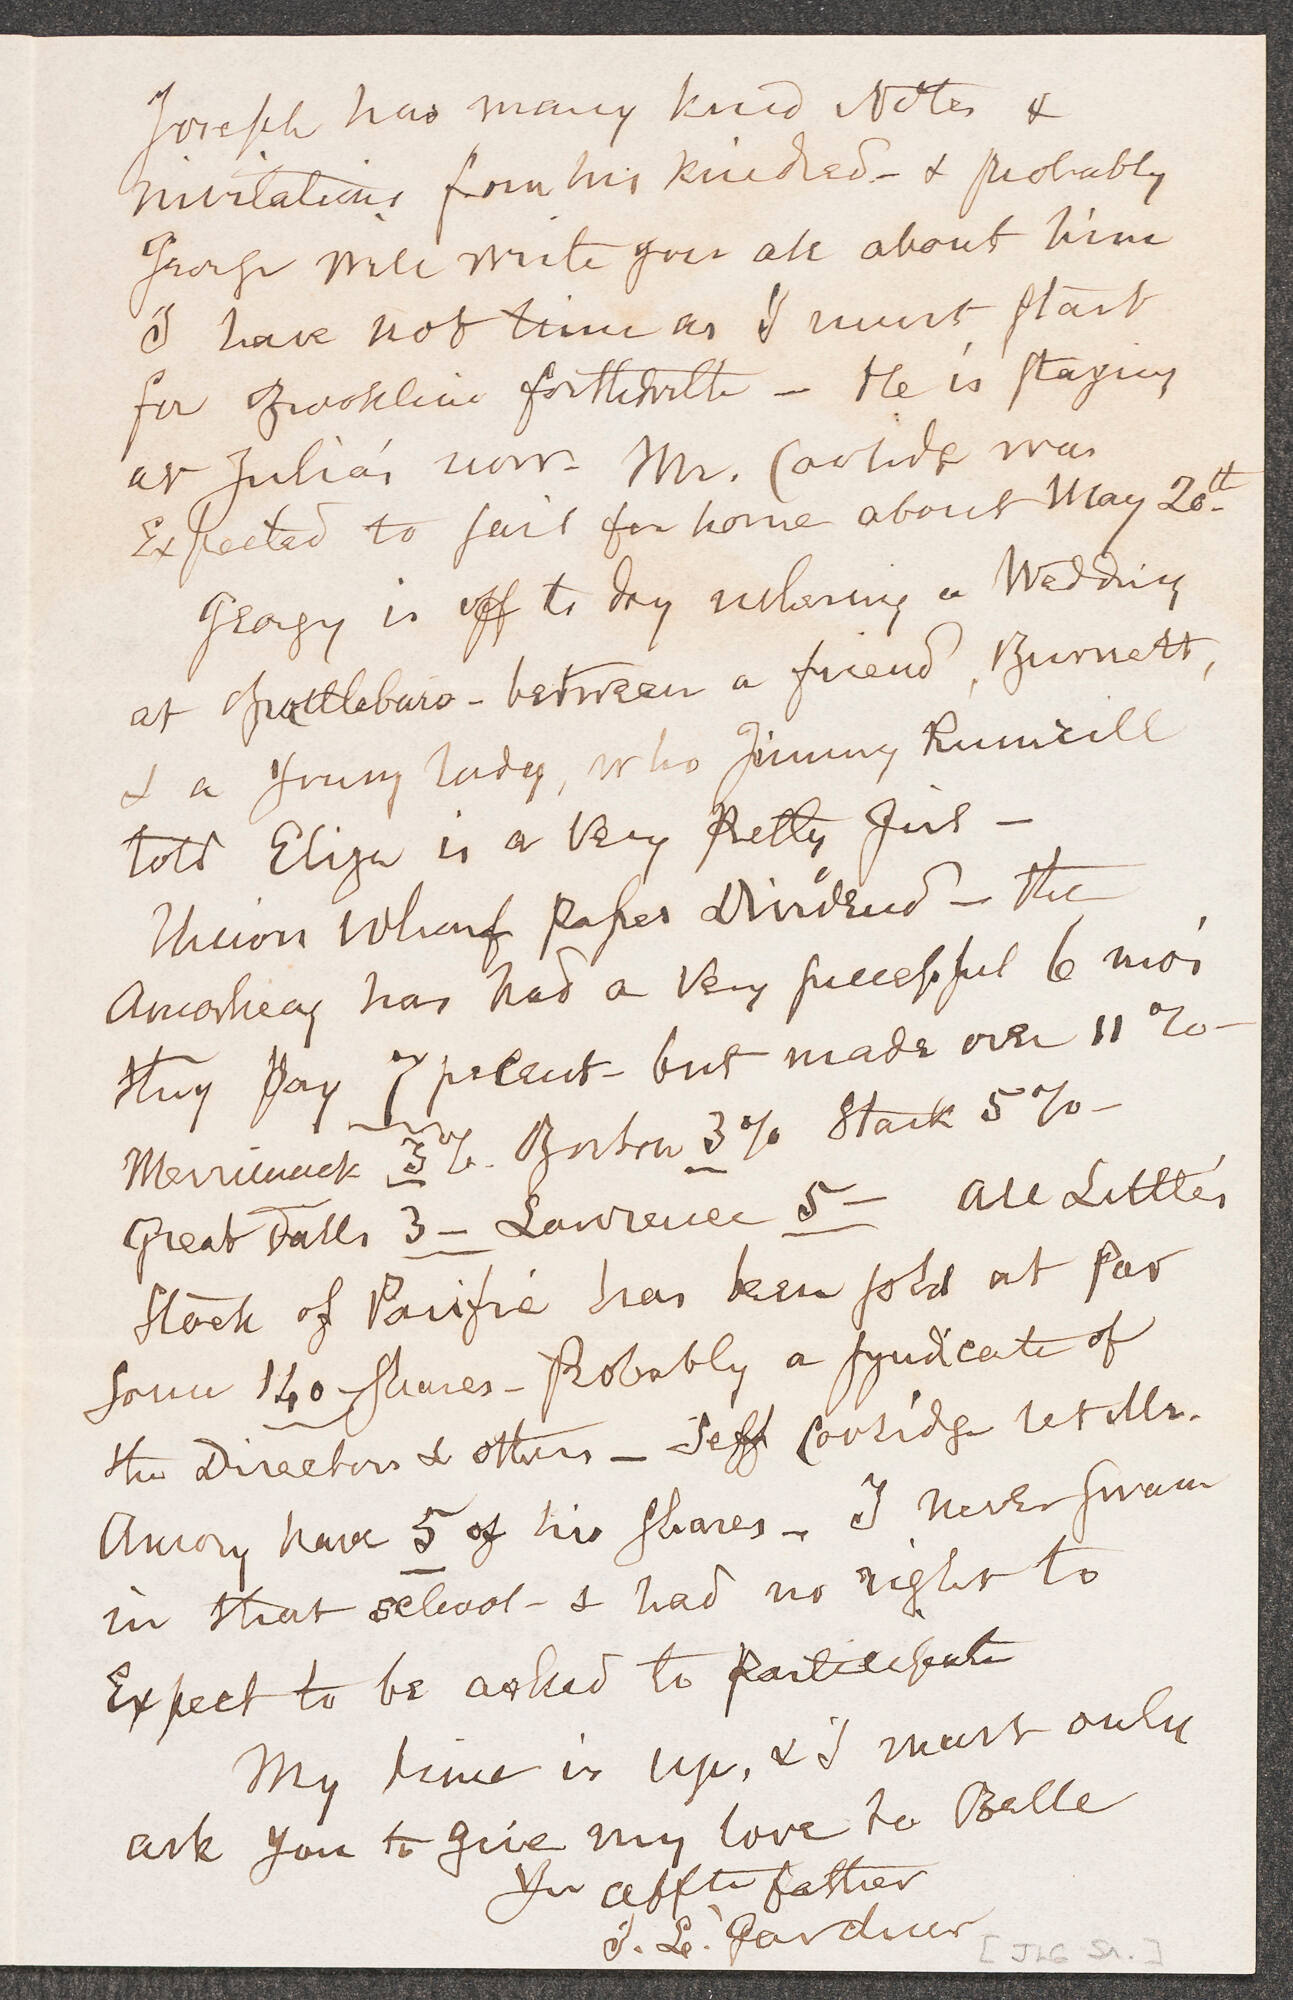 Joseph has many kind Notes &
invitations from his kindred - & probably
George will write you all about him
I have not time as I must start
for Brookline forthwith - He is staying
at Julia's now - Mr. Coolidge was
Expected to sail for home about May 20th -
Georgy is off to day ushering a Wedding
at Brattleboro - between a friend, Burnett,
& a Young lady, who Jimmy Rumrill
told Eliza is a Very Pretty Girl -
Union Wharf passes Dividend - the
Amoskeag has had a Very successful 6 mo's
they Pay 7 pr cent - but made over 11 % -
Merrimack 3%. Boston 3% Stark 5% -
Great Falls 3 - Lawrence 5 - All Little's
Stock of Pacific has been sold at Par
Some 140 shares - Probably a syndicate of
the Directors & others - Jeff Coolidge let Mr.
Amory have 5 of his shares - I never swam
in that school - & had no right to
Expect to be asked to Participate
My time is up, & I must only
ask you to give my love to Belle
Yr affte father
J. L. Gardner
[JLG Sr.]